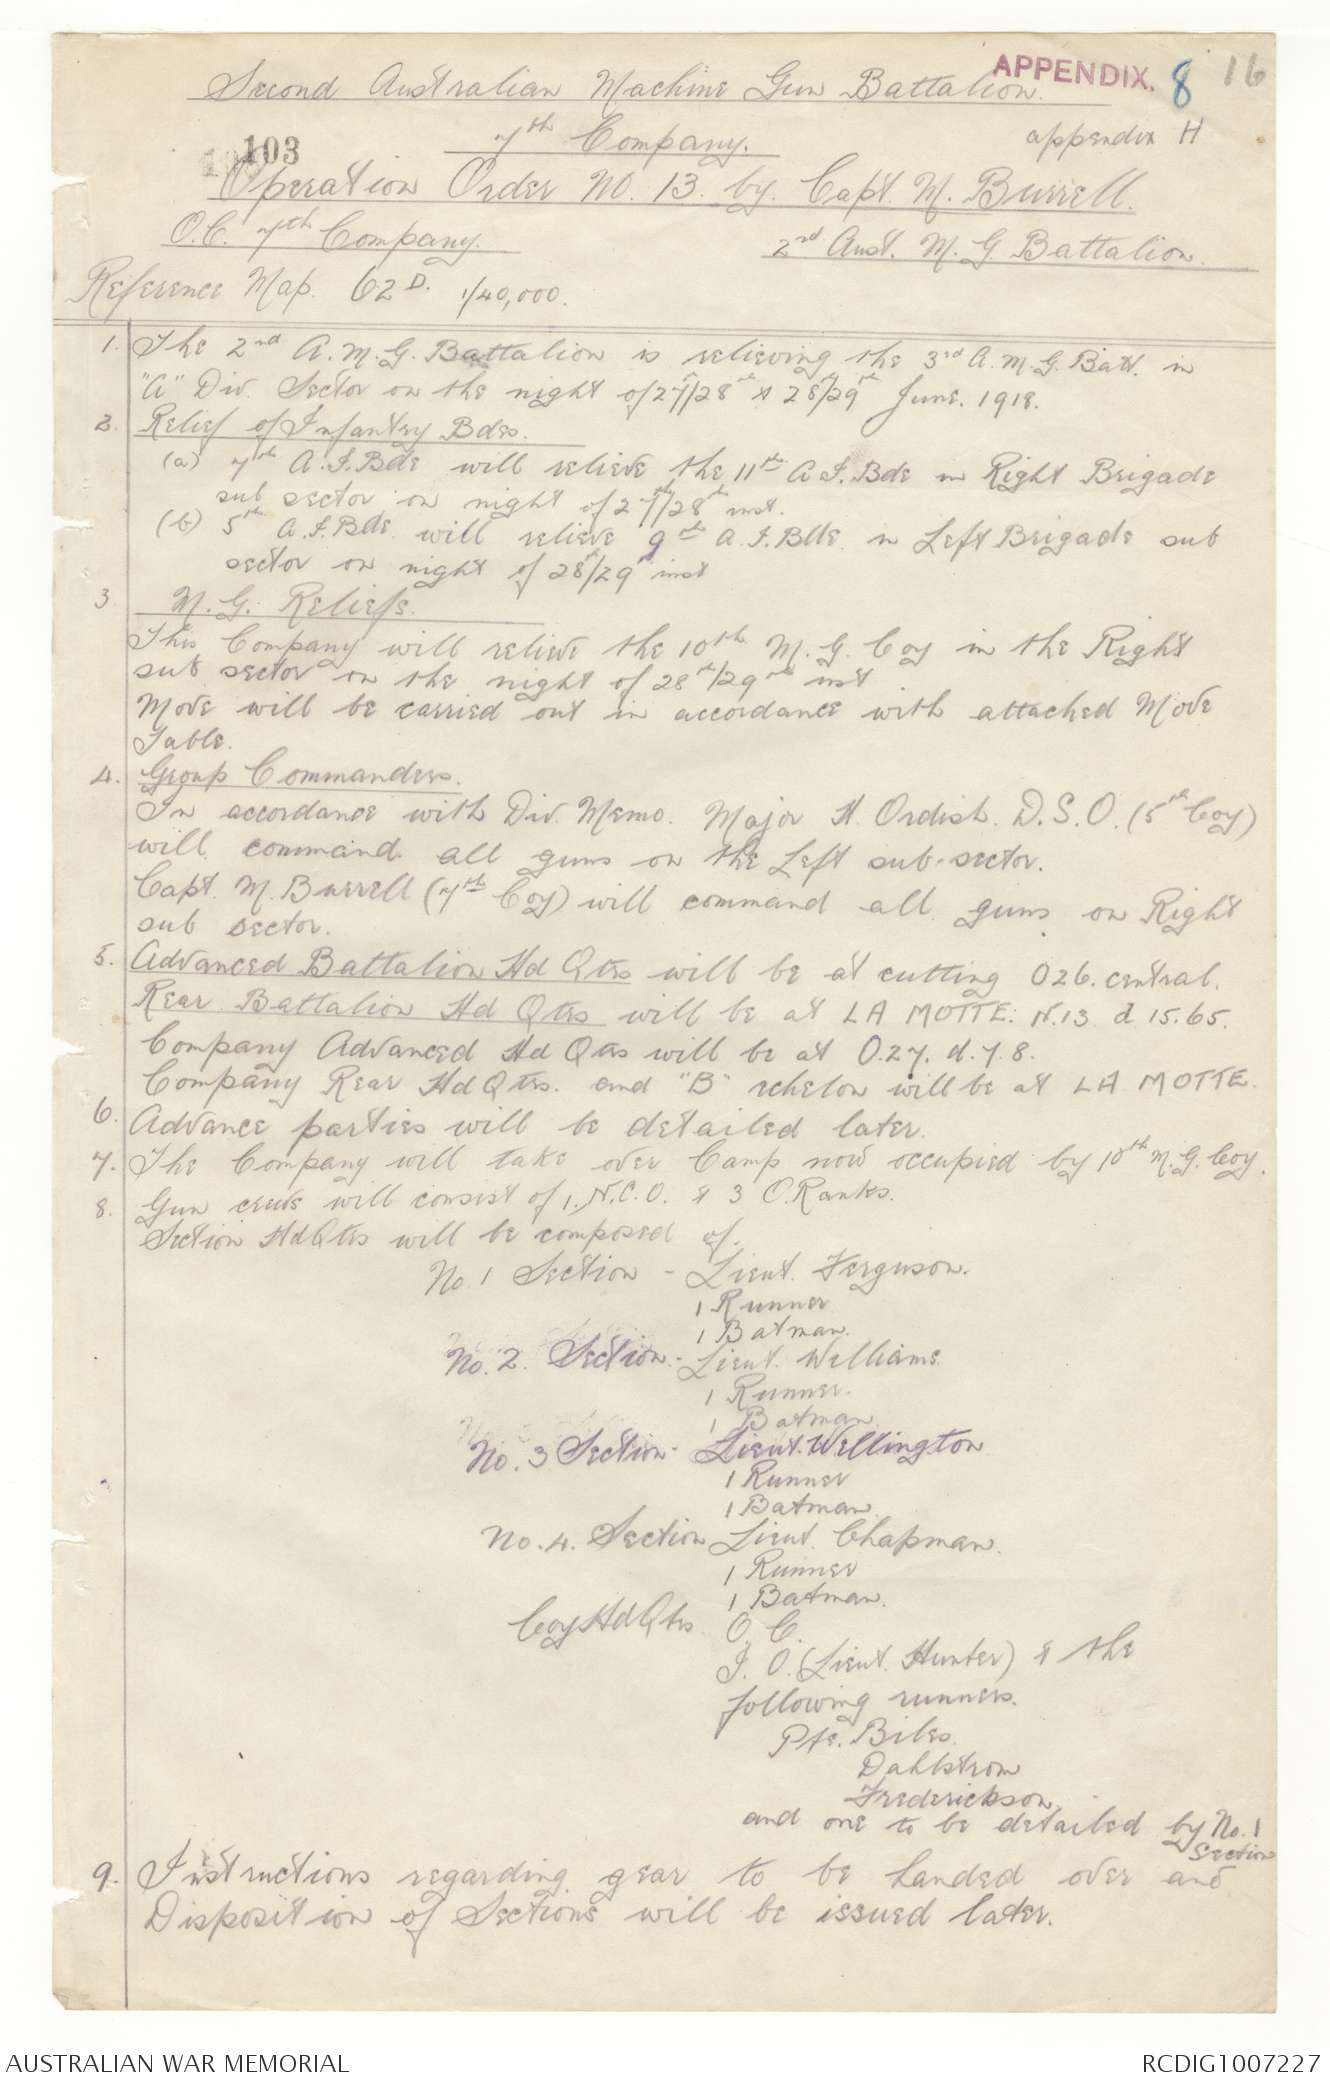 APPENDIX. 8 16
Second Australian Machine Gun Battalion.
7th Company.
appendix H
103
Operation Order No. 13. by. Capt. M. Burrell.
O.C. 7th Company.
2nd Aust. M. G Battalion.
Reference Map. 62D. 1/40,000.
1. The 2nd A.M.G. Battalion is relieving the 3rd A.M.G. Batt. in
"A" Div. Sector on the night of 27/28th & 28th/29th June. 1918.
2. Relief of Infantry Bdes.
(a) 7th A.I.Bde will relieve the 11th A.I.Bde in Right Brigade
sub sector on night of 27th/28th inst.
(b) 5th A.I.Bde. will relieve 9th A.I.Bde. in Left Brigade sub
sector on night of 28th/29th inst
3. M.G. Reliefs.
This Company will relieve the 10th M.G. Coy in the Right
sub sector on the night of 28th/29th inst
Move will be carried out in accordance with attached Move
Table.
4. Group Commanders.
In accordance with Div. Memo. Major H. Ordish. D.S.O. (5th Coy)
will command all guns on the Left sub-sector.
Capt. M. Burrell (7th Coy) will command all guns on Right
sub sector.
5. Advanced Battalion Hd Qtrs will be at cutting O26. central.
Rear Battalion Hd Qtrs will be at LA MOTTE. N.13. d 15.65.
Company Advanced Hd Qtrs will be at O.27. d.7.8.
Company Rear Hd Qtrs. and "B" echelon will be at LA MOTTE.
6. Advance parties will be detailed later.
7. The Company will take over Camp now occupied by 10th M.G. Coy.
8. Gun crews will consist of 1. N.C.O. & 3 O.Ranks.
Section Hd Qtrs will be composed of.
No. 1 Section - Lieut. Ferguson.
1 Runner
1 Batman.
No. 2. Section. - Lieut. Williams.
1 Runner.
1 Batman.
No. 3 Section - Lieut. Wellington
1 Runner
1 Batman.
No. 4. Section Lieut. Chapman.
1 Runner
1 Batman.
Coy Hd Qtrs O.C.
I.O. (Lieut. Hunter) & the
following runners.
Pte. Biles.
Dahlstrom
Frederickson
and one to be detailed by No. 1
Section
9. Instructions regarding gear to be handed over and
Disposition of Sections will be issued later.
AUSTRALIAN WAR MEMORIAL
RCDIG1007227